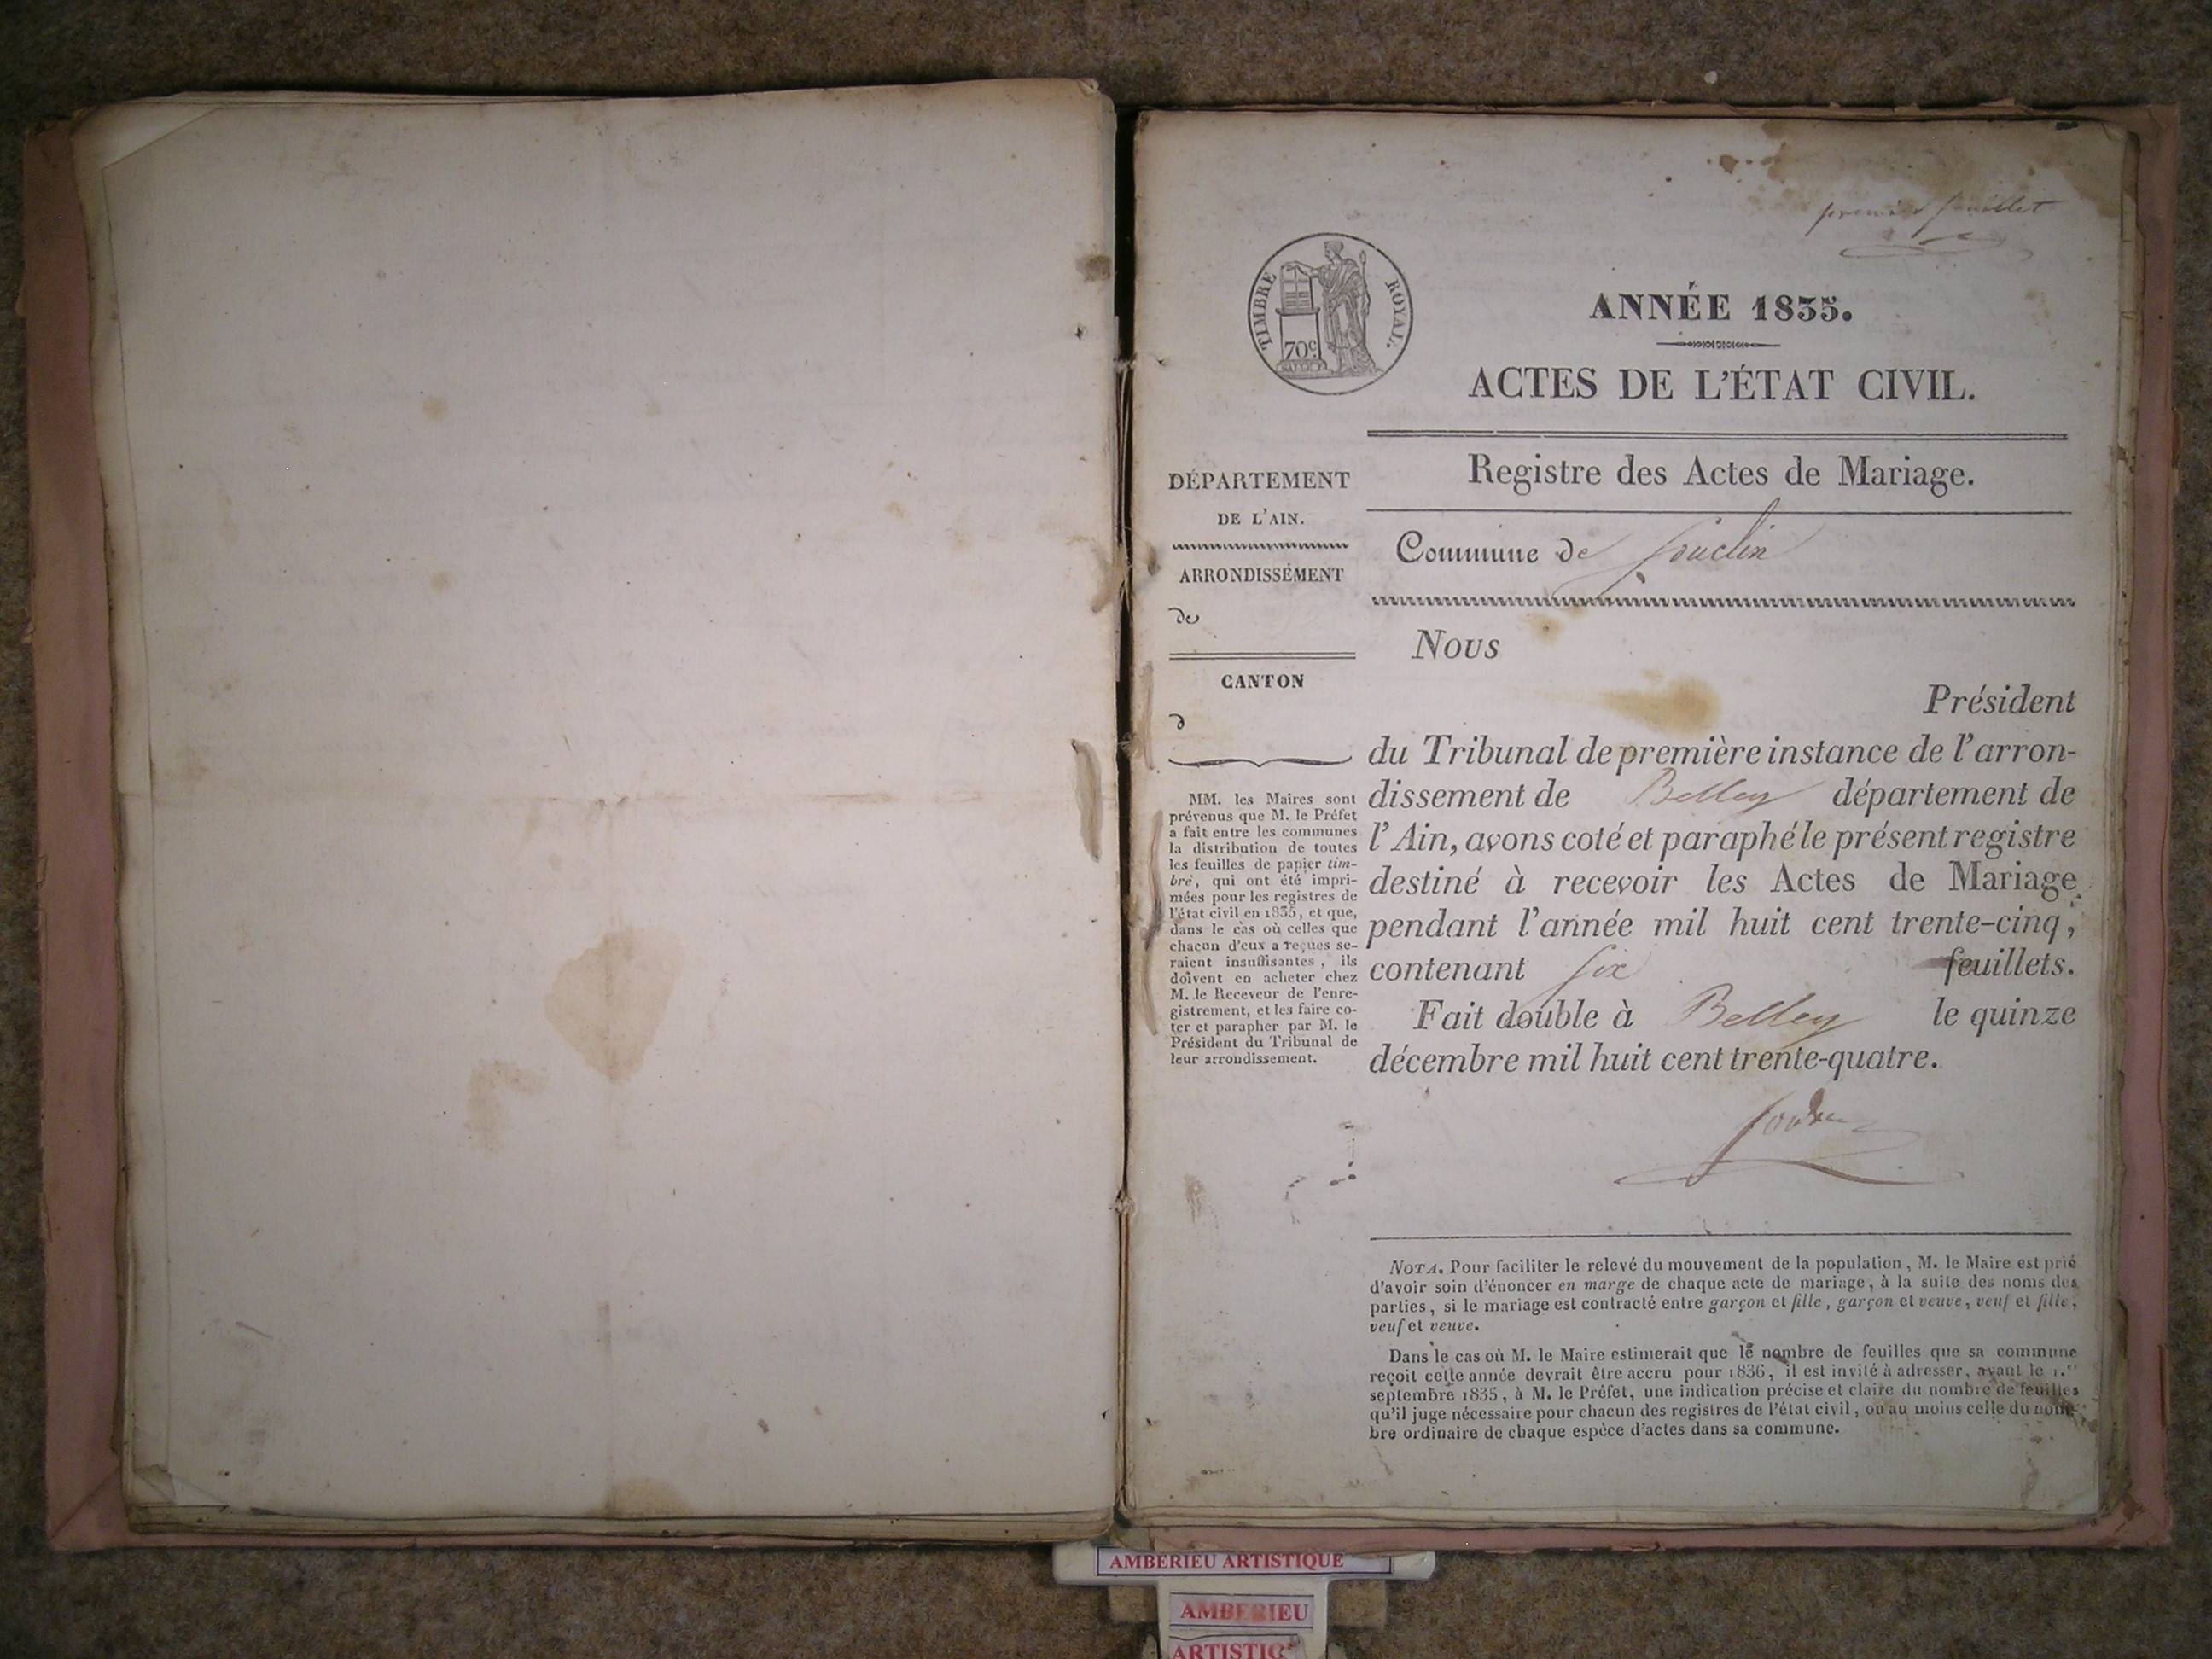 premier feuillet
TIMBRE ROYAL.
70c
ANNÉE 1835.
ACTES DE L'ÉTAT CIVIL.
Registre des Actes de Mariage.
Commune de Souclin
DÉPARTEMENT
DE L'AIN.
ARRONDISSEMENT
de
CANTON
d
MM. les Maires sont
prévenus que M. le Préfet
a fait entre les communes
la distribution de toutes
les feuilles de papier tim-
bré, qui ont été impri-
mées pour les registres de
l'état civil en 1835, et que,
dans le cas où celles que
chacun d'eux a reçues se-
raient insuffisantes, ils
doivent en acheter chez
M. le Receveur de l'enre-
gistrement, et les faire co-
ter et parapher par M. le
Président du Tribunal de
leur arrondissement.
Nous
Président
du Tribunal de première instance de l'arron-
dissement de Belley département de
l'Ain, avons coté et paraphé le présent registre
destiné à recevoir les Actes de Mariage
pendant l'année mil huit cent trente-cinq,
contenant six feuillets.
Fait double à Belley le quinze
décembre mil huit cent trente-quatre.
NOTA. Pour faciliter le relevé du mouvement de la population, M. le Maire est prié
d'avoir soin d'énoncer en marge de chaque acte de mariage, à la suite des noms des
parties, si le mariage est contracté entre garçon et fille, garçon et veuve, veuf et fille,
veuf et veuve.
Dans le cas où M. le Maire estimerait que le nombre de feuilles que sa commune
reçoit cette année devrait être accru pour 1836, il est invité à adresser, avant le 1.er
septembre 1835, à M. le Préfet, une indication précise et claire du nombre de feuilles
qu'il juge nécessaire pour chacun des registres de l'état civil, ou au moins celle du nom-
bre ordinaire de chaque espèce d'actes dans sa commune.
AMBERIEU ARTISTIQUE
AMBERIEU
ARTISTIQ